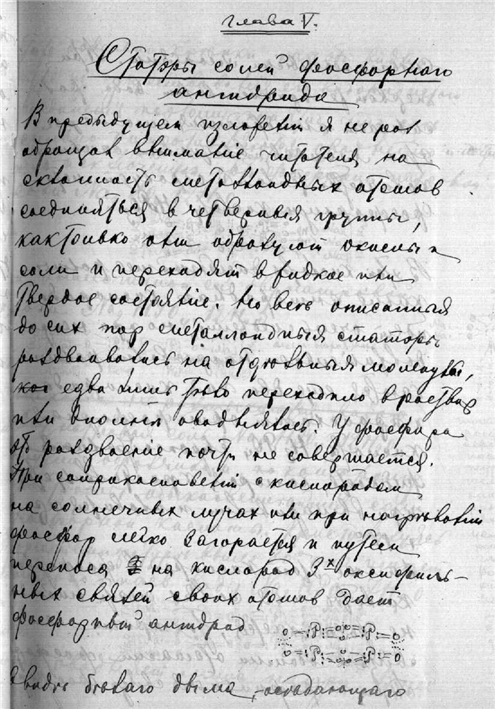 Глава V.
Статоры солей фосфорнаго
ангидрида
В предыдущем изложении я не раз
обращал внимание читателя на
склонность металлоидных атомов
соединяться в четверныя группы,
как только они образуют окислы и
соли и переходят в жидкое или
твердое состояние. Но все описанныя
до сих пор металлоидныя статоры
раздваивались на отдельныя молекулы,
едва лишь тело переходило в раствор
или вполне оводнялось. У фосфора
это раздвоение почти не совершается.
При соприкосновении с кислородом
на солнечных лучах или при нагревании
фосфор легко загорается и путем
переноса на кислород 3х оксифиль-
ных связей своих атомов дает
фосфорный ангидрид
в виде белаго дыма, оседающаго